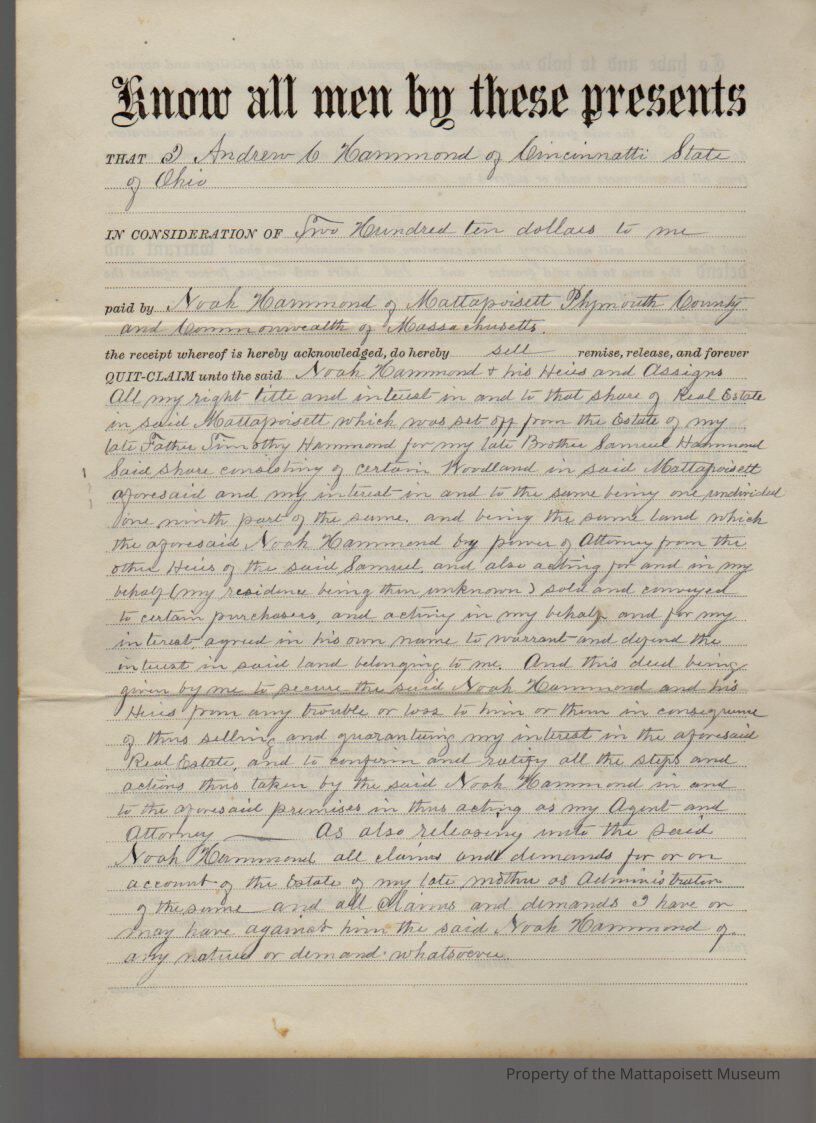 Know all men by these presents
THAT I Andrew C Hammond of Cincinnatti State
of Ohio
IN CONSIDERATION OF Two Hundred ten dollars to me
paid by Noah Hammond of Mattapoisett Plymouth County
and Commonwealth of Massachusetts.
the receipt whereof is hereby acknowledged, do hereby sell remise, release, and forever
QUIT-CLAIM unto the said Noah Hammond & his Heirs and Assigns
All my right title and interest in and to that share of Real Estate
in said Mattapoisett which was set off from the Estate of my
late Father Timothy Hammond for my late Brother Samuel Hammond
Said share consisting of certain Woodland in said Mattapoisett
aforesaid and my interest in and to the same being one undivided
one ninth part of the same. and being the same land which
the aforesaid Noah Hammond by power of Attorney from the
other Heirs of the said Samuel, and also acting for and in my
behalf (my residence being then unknown) sold and conveyed
to certain purchasers, and acting in my behalf and for my
interest, agreed in his own name to warrant and defend the
interest in said land belonging to me. And this deed being
given by me to secure the said Noah Hammond and his
Heirs from any trouble or loss to him or them in consequence
of thus selling and guaranteeing my interest in the aforesaid
Real Estate, and to confirm and ratify all the steps and
actions thus taken by the said Noah Hammond in and
to the aforesaid premises in thus acting as my Agent and
Attorney — As also releasing unto the said
Noah Hammond all claims and demands for or on
account of the Estate of my late mother as Administrator
of the same and all Claims and demands I have or
may have against him the said Noah Hammond of
any nature or demand whatsoever.
Property of the Mattapoisett Museum